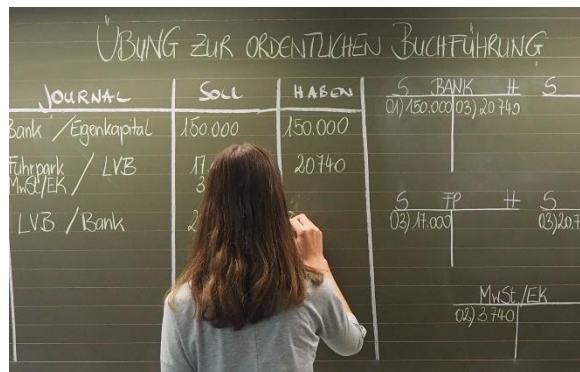 ÜBUNG ZUR ORDENTLICHEN BUCHFÜHRUNG
JOURNAL SOLL HABEN
Bank / Eigenkapital 150.000 150.000
Fuhrpark / LVB 17. 20740
MwSt/EK 3
LVB / Bank 2
S BANK H
01) 150.000 03) 20740
S FP H
03) 17.000
S
S
03) 20.7
MwSt/EK
02) 3740